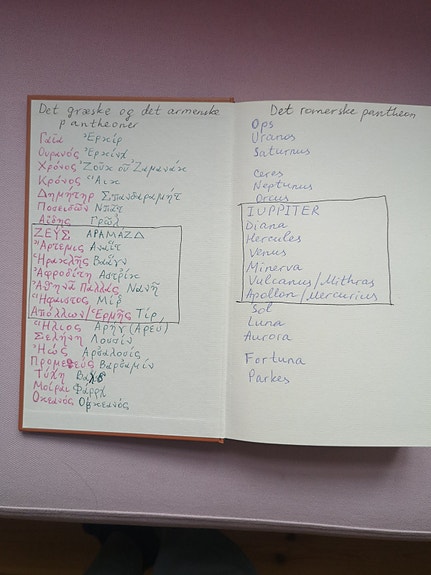 Det græske og det armenske
pantheoner
Γαῖα Ἐρκίρ
Οὐρανός Ἐρκίνχ
Χρόνος Ζοῦκ οὐ Ζαμανάκ
Κρόνος Ἅικ
Δημήτηρ Σπανδαραμήτ
Ποσειδῶν Νπάτ
Αἵδης Γρώλ
ΖΕΥΣ ΑΡΑΜΑΖΔ
Ἄρτεμις Αναΐτ
Ἡρακλῆς Βαἅγν
Ἀφροδίτη Αστρίκ
Ἀθηνᾶ Παλλάς Νανῆ
Ἥφαιστος Μίρ
Ἀπόλλων/Ἑρμῆς Τίρ,
Ἥλιος Αρήγ (Αρεύ)
Σελήνη Λουσίν
Ἠώς
Προμηθεύς
Τύχη
Μοῖραι
Ὠκεανός
Det romerske pantheon
Ops
Uranos
Saturnus
Ceres
Neptunus
Orcus
IUPPITER
Diana
Hercules
Venus
Minerva
Vulcanus/Mithras
Apollon/Mercurius
Sol
Luna
Aurora
Fortuna
Parkes